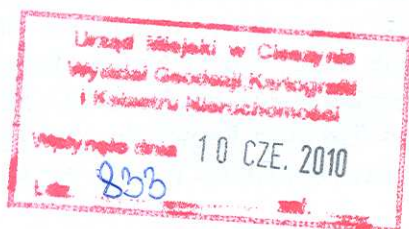 Urząd Miejski w Cieszynie
Wydział Geodezji, Kartografii
i Katastru Nieruchomości
Wpłynęło dnia 10 CZE. 2010
L.dz. 833 zał.